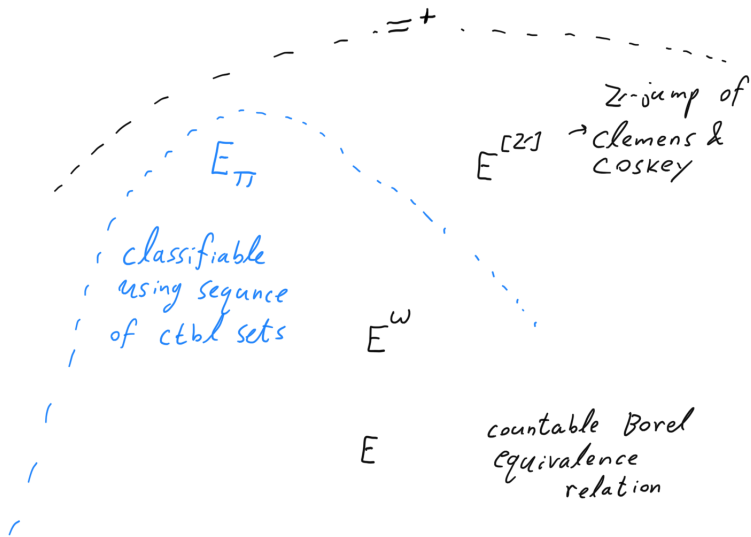 =⁺
ℤ-jump of
E^[ℤ] → Clemens &
Coskey
E_Π
classifiable
using sequnce
of ctbl sets
E^ω
E
countable Borel
equivalence
relation